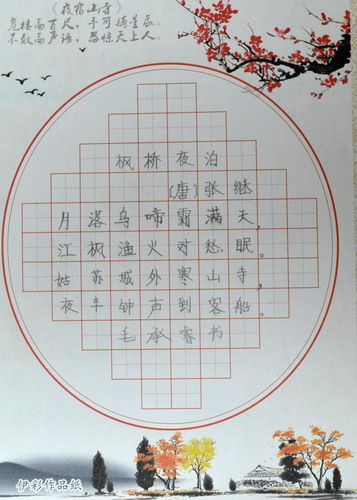 《夜宿山寺》
危楼高百尺，手可摘星辰。
不敢高声语，恐惊天上人。
枫桥夜泊
(唐)张继
月落乌啼霜满天，
江枫渔火对愁眠。
姑苏城外寒山寺，
夜半钟声到客船。
毛承睿书
伊彩作品纸